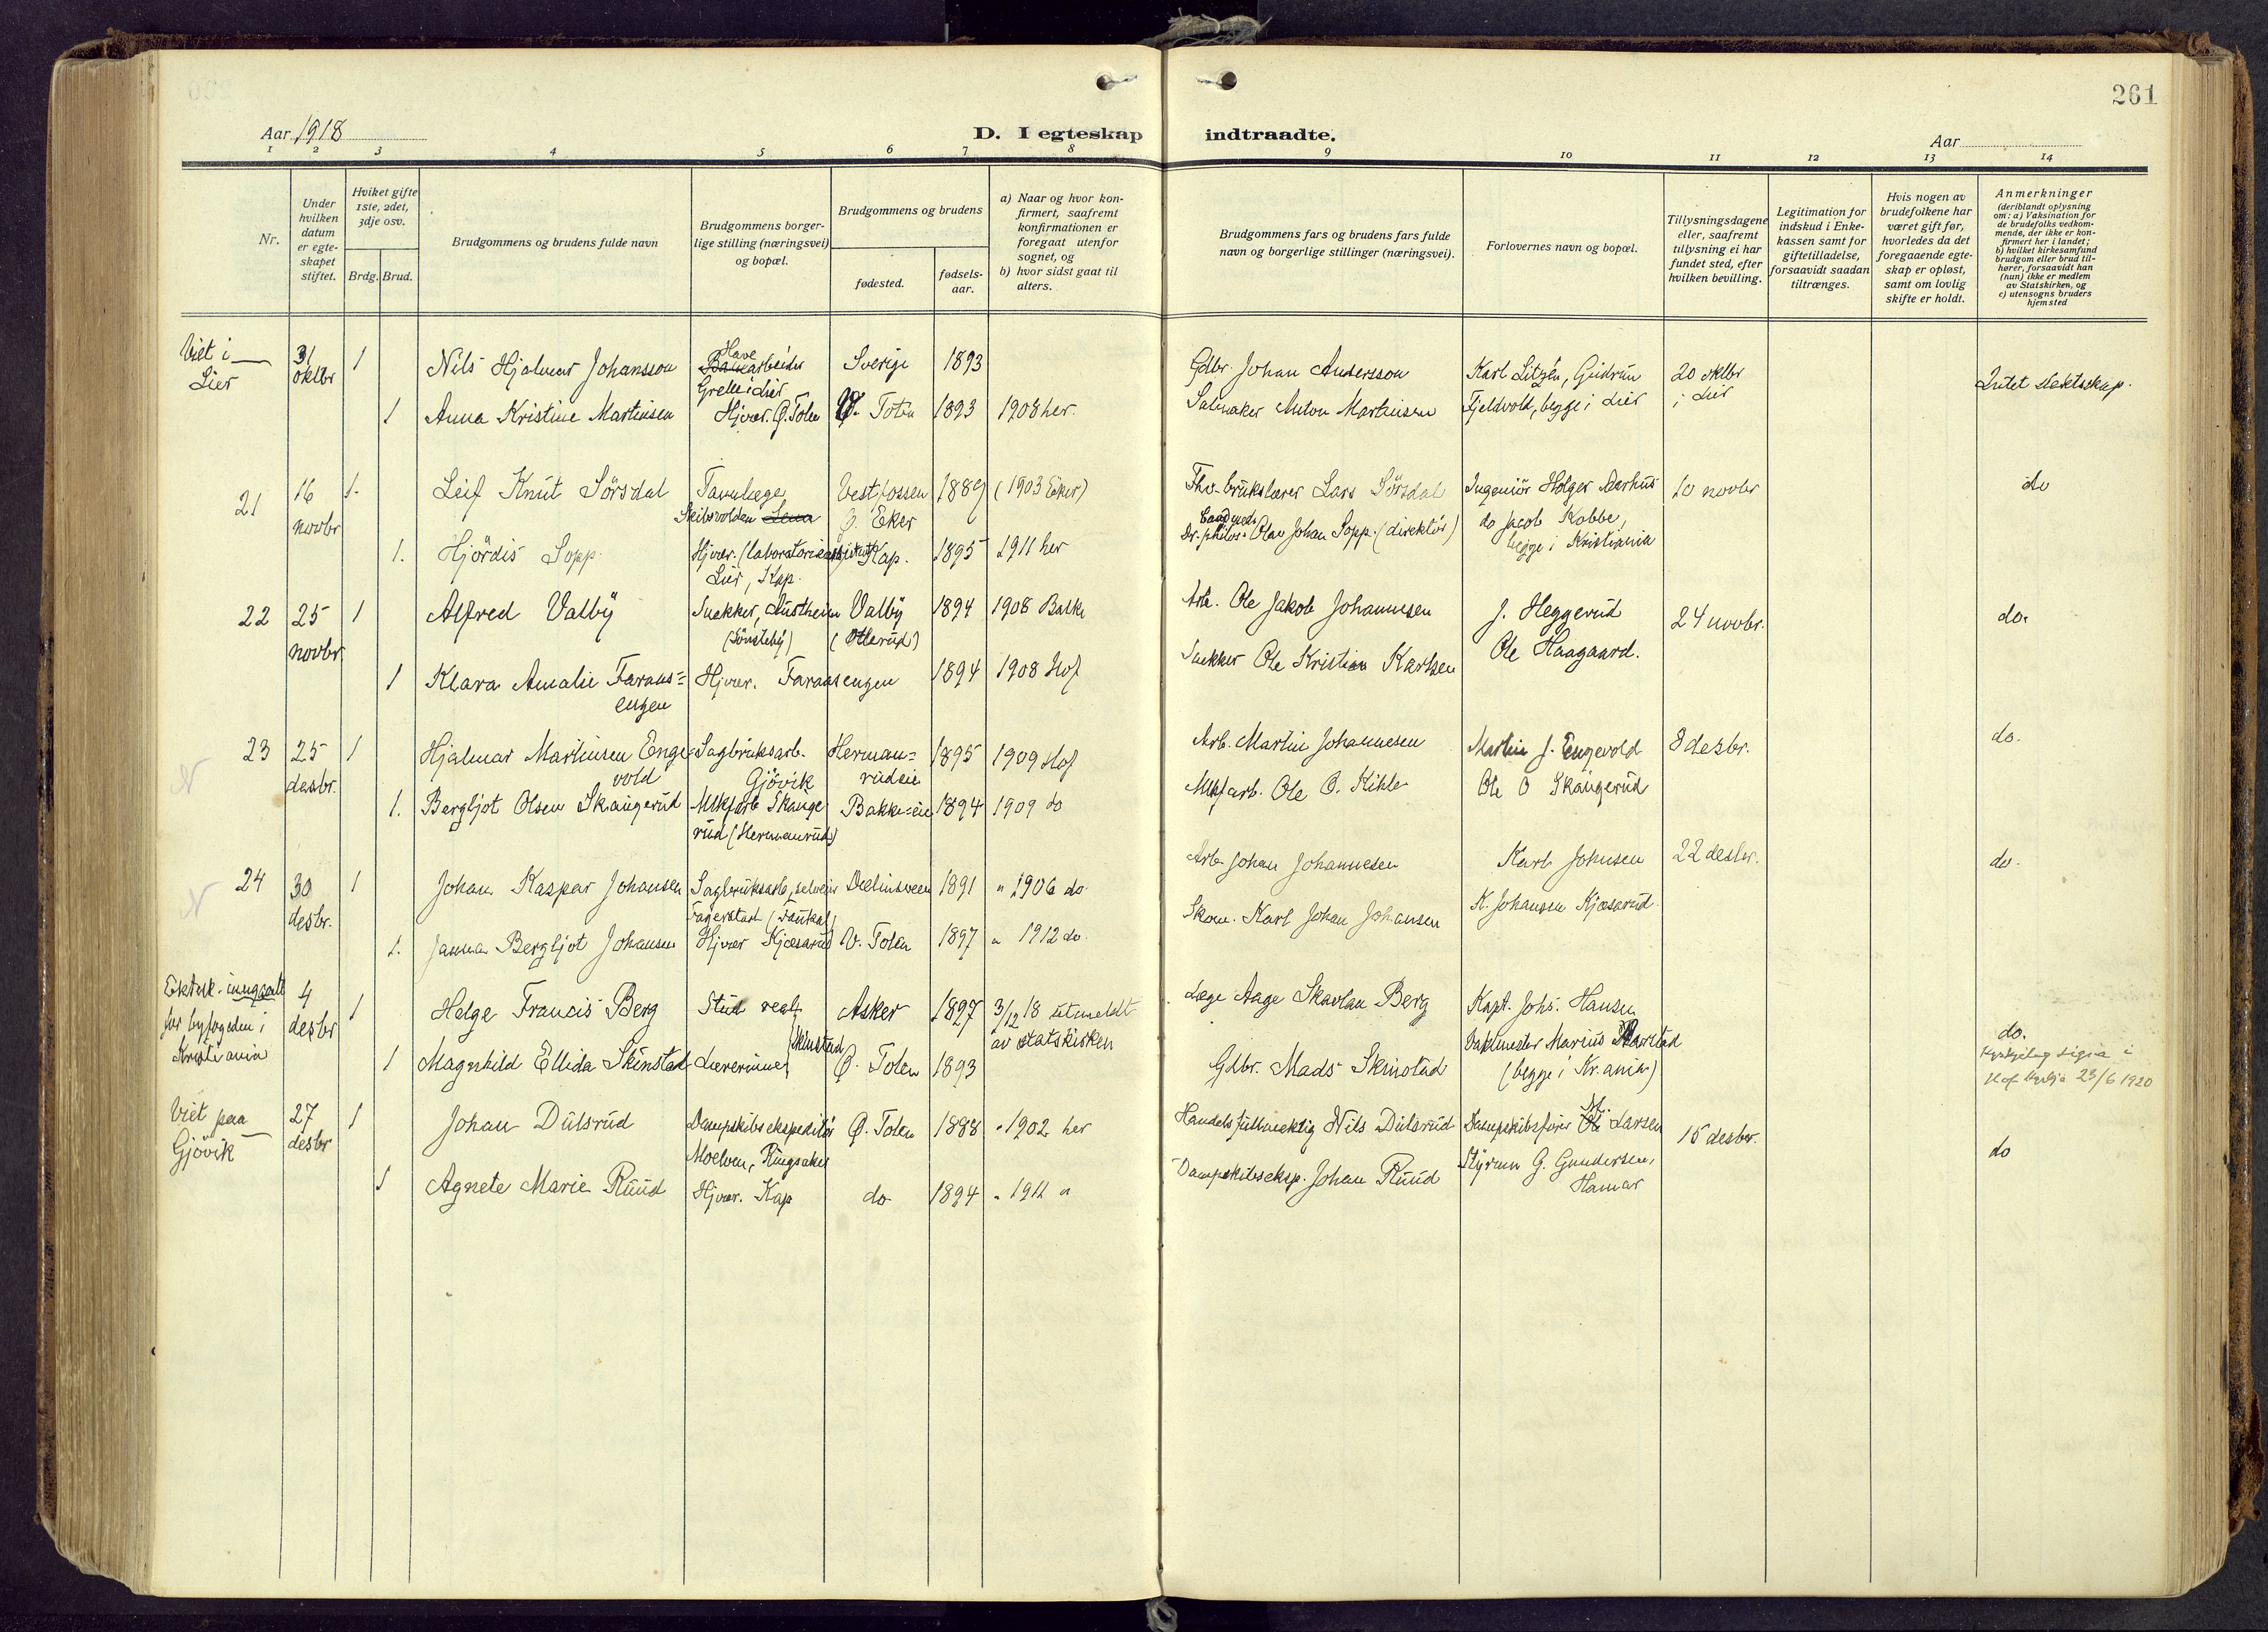 261
Aar 1918
D. I egteskap indtraadte.
Aar
1 2 3 4 5 6 7 8 9 10 11 12 13 14
Nr.
Under hvilken datum er egteskapet stiftet.
Hviket gifte 1ste, 2det, 3dje osv.
Brdg. Brud.
Brudgommens og brudens fulde navn
Brudgommens borgerlige stilling (næringsvei) og bopæl.
Brudgommens og brudens
fødested.
fødselsaar.
a) Naar og hvor konfirmert, saafremt konfirmationen er foregaat utenfor sognet, og
b) hvor sidst gaat til alters.
Brudgommens fars og brudens fars fulde navn og borgerlige stillinger (næringsvei).
Forlovernes navn og bopæl.
Tillysningsdagene eller, saafremt tillysning ei har fundet sted, efter hvilken bevilling.
Legitimation for indskud i Enkekassen samt for giftetilladelse, forsaavidt saadan tiltrænges.
Hvis nogen av brudefolkene har været gift før, hvorledes da det foregaaende egteskap er opløst, samt om lovlig skifte er holdt.
Anmerkninger
(deriblandt oplysning om: a) Vaksination for de brudefolks vedkommende, der ikke er konfirmert her i landet; b) hvilket kirkesamfund brudgom eller brud tilhører, forsaavidt han (hun) ikke er medlem av Statskirken, og c) utensogns bruders hjemsted
Viet i Lier 31 oktbr 1 Nils Hjalmar Johansson Havearbeider Sverige 1893 Gdbr. Johan Andersson Karl Litzén, Gudrun 20 oktbr i Lier Intet slektskap.
1 Anna Kristine Martinsen Hjvær. Ø. Toten Ø. Toten 1893 1908 her. Salmaker Anton Martinsen Fjeldvold, begge i Lier
21 16 novbr 1. Leif Knut Sörsdal Tannlæge, Skibsvolden Vestfossen Ø. Eker 1889 (1903 Eker) Lars Sörsdal Ingeniör Holger Aarhus 10 novbr do
1. Hjördis Sopp Hjvær. Lier, Kap. Kap. 1895 1911 her Cand med. Dr. philos. Olav Johan Sopp. (direktör) do Jacob Kobbe, begge i Kristiania
22 25 novbr 1 Alfred Valby Snekker, Austheim (Sönsteby) Valby (Otterud) 1894 1908 Balke Arb. Ole Jakob Johannesen J. Heggerud 24 novbr. do.
1 Klara Amalie Faraasengen Hjvær. Faraasengen 1894 1908 Hof Snekker Ole Kristian Karlsen Ole Haagaard.
23 25 desbr. 1 Hjalmar Martinsen Engevold Sagbruksarb. Gjövik Hermanrudeie 1895 1909 Hof Arb. Martin Johannesen Martin J. Engevold 8 desbr. do.
1. Bergljot Olsen Skaugerud Mlkfarb Skaugerud (Hermanrud) Bakke-eie 1894 1909 do Mlkfarb. Ole O. Kihle Ole O Skaugerud
24 30 desbr. 1 Johan Kaspar Johansen Sagbruksarb, selveier Fagerstad 1891 " 1906 do. Arb Johan Johannesen Karl Johnsen 22 desbr. do.
1. Janna Bergljot Johansen Hjvær Kjøsarud V. Toten 1897 " 1912 do. Skom. Karl Johan Johansen K. Johansen Kjøsarud.
Ektesk. inngaatt for byfogeden i Kristiania 4 desbr 1 Helge Francis Berg Stud real. Asker 1897 3/12 18 utmeldt av statskirken Læge Aage Skavlan Berg Kapt. Johs. Hansen do.
1 Magnhild Ellida Skinstad Lærerinne, Ø. Toten 1893 Gdbr. Mads Skinstad Vaktmester Marius (begge i Kr.ania)
Kyrkjeleg signa i Hof kyrkje 23/6 1920
Viet paa Gjövik 27 desbr 1 Johan Dülsrud Dampskibsekspeditör Moelven, Ringsaker Ø. Toten 1888 " 1902 her Handelsfullmektig Nils Dülsrud Dampskibsförer M. Larsen 15 desbr. do
1 Agnete Marie Ruud Hjvær. Kap do 1894 " 1911 " Dampskibseksp. Johan Ruud Styrman G. Gundersen, Hamar